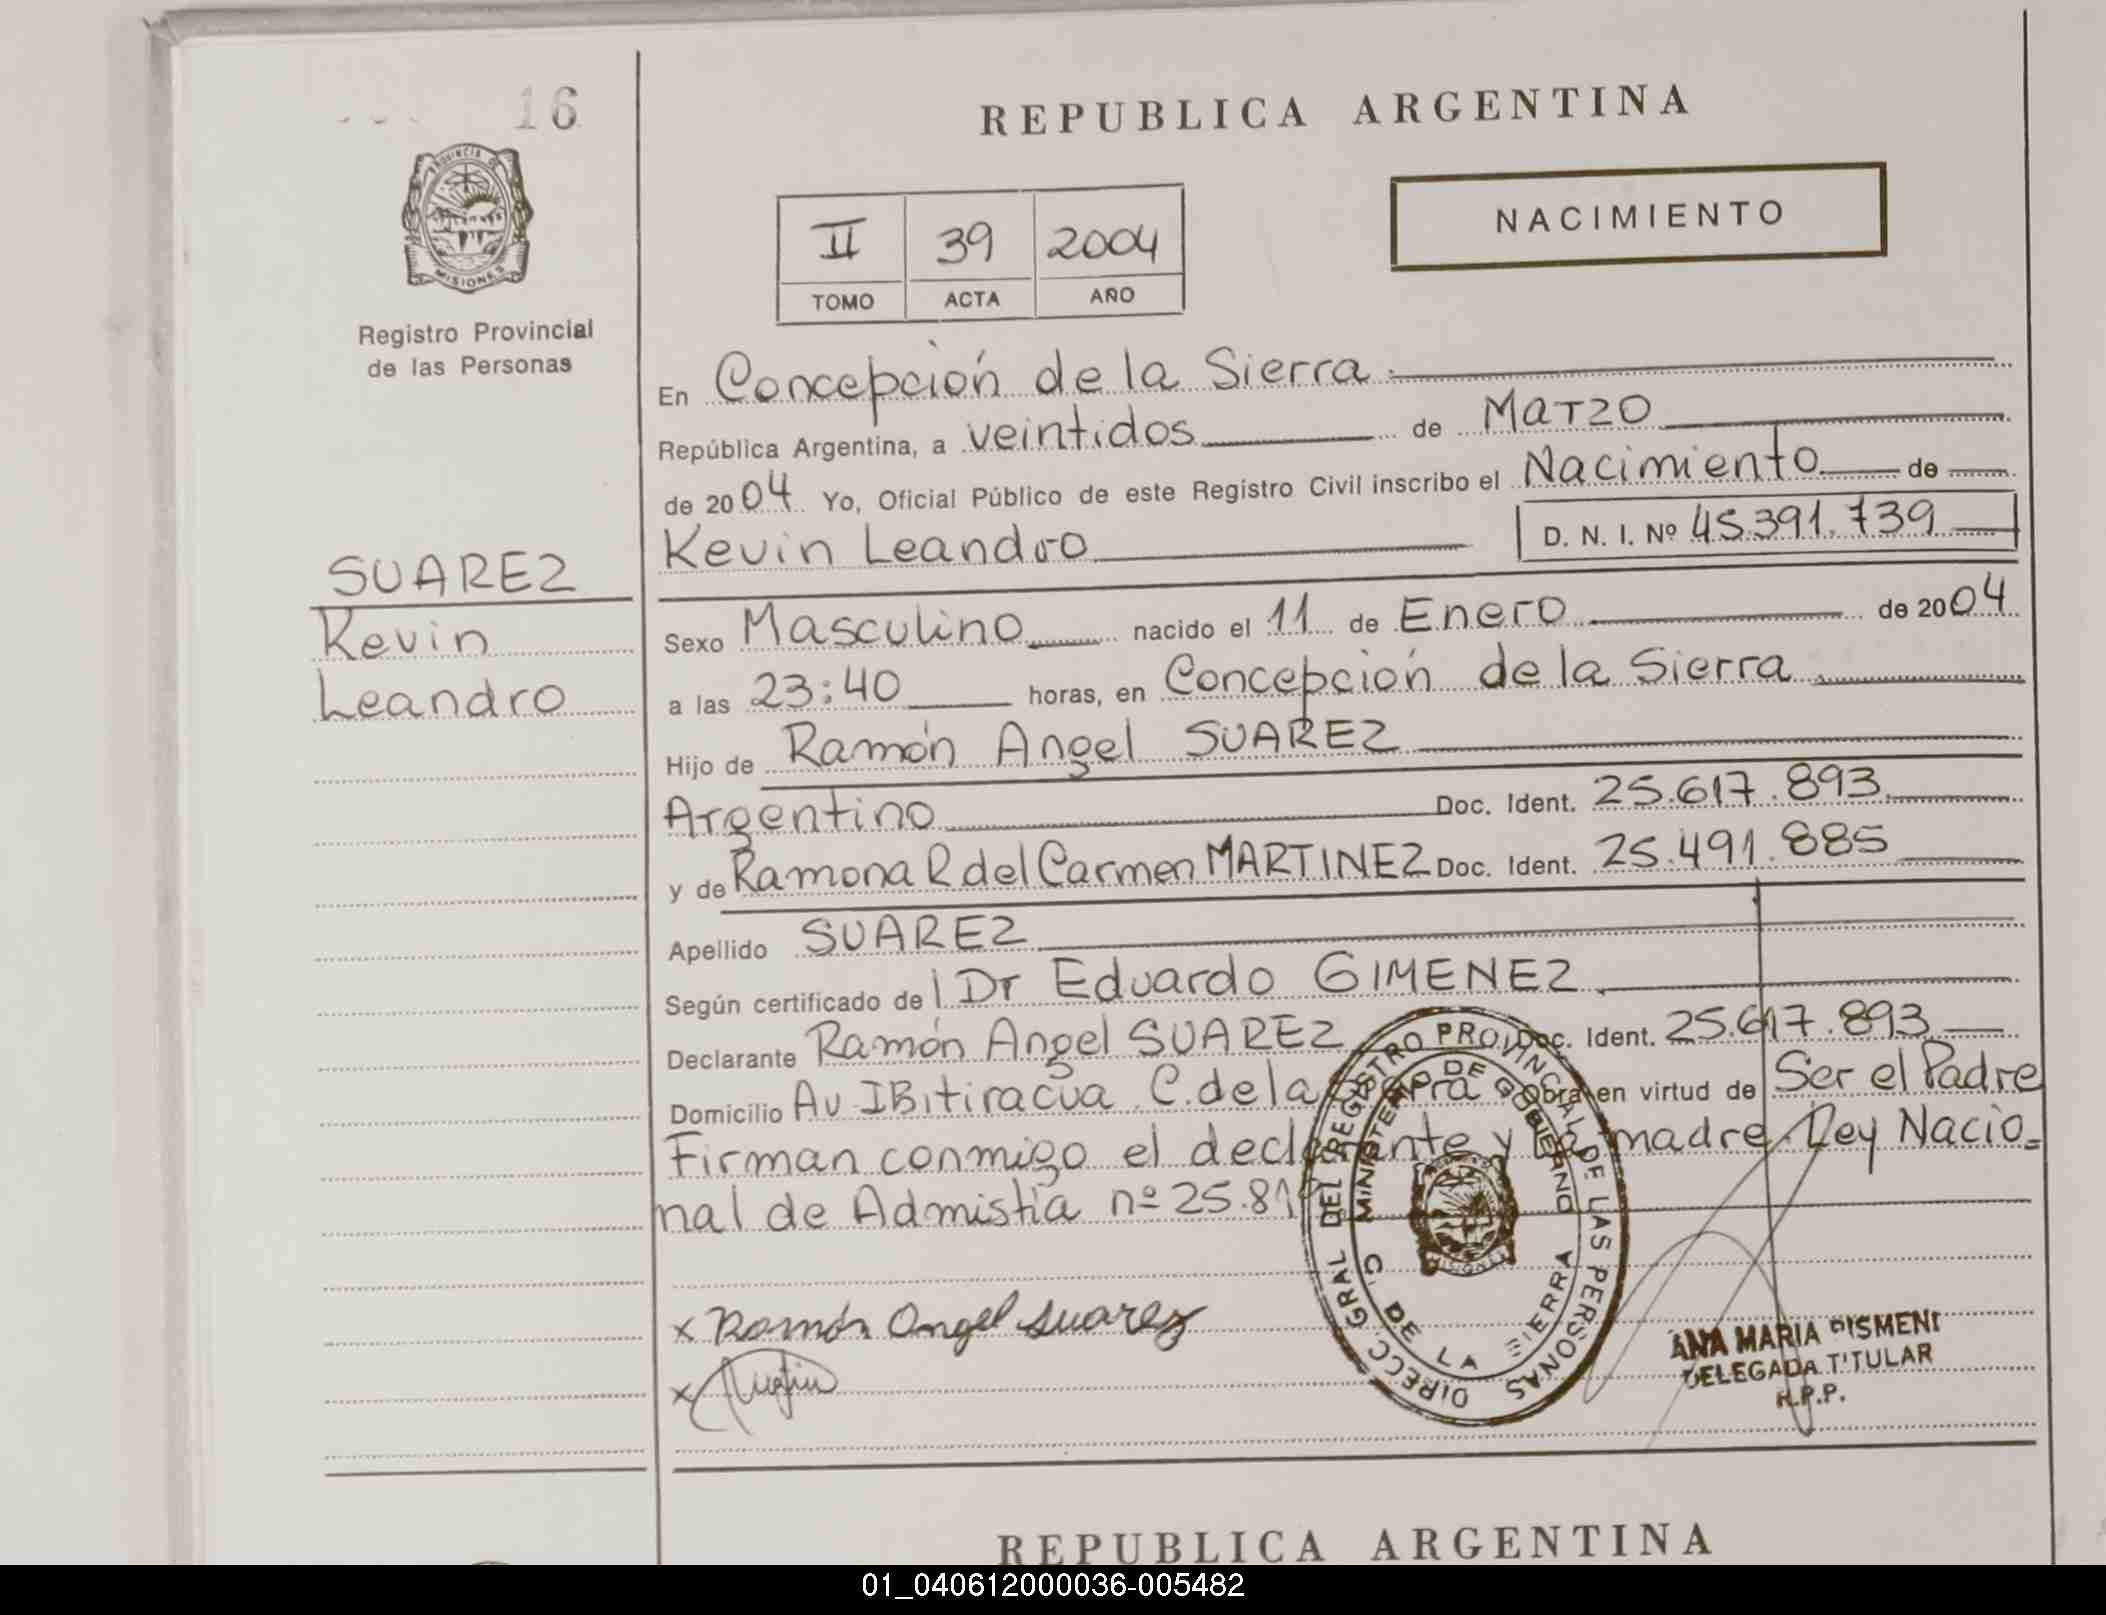 16
REPUBLICA ARGENTINA
PROVINCIA DE
MISIONES
Registro Provincial
de las Personas
NACIMIENTO
II 39 2004
TOMO ACTA AÑO
En Concepción de la Sierra
República Argentina, a veintidos de Marzo
de 2004 Yo, Oficial Público de este Registro Civil inscribo el Nacimiento de
Kevin Leandro D. N. I. Nº 45.391.739
SUAREZ
Kevin
Leandro
Sexo Masculino nacido el 11 de Enero de 2004
a las 23:40 horas, en Concepción de la Sierra
Hijo de Ramón Angel SUAREZ
Argentino Doc. Ident. 25.617.893
y de Ramona R del Carmen MARTINEZ Doc. Ident. 25.491.885
Apellido SUAREZ
Según certificado de l Dr Eduardo GIMENEZ
Declarante Ramón Angel SUAREZ Doc. Ident. 25.617.893
Domicilio Av IBitiracua C. de la Sierra Obra en virtud de Ser el Padre
Firman conmigo el declarante y la madre. Ley Nacio=
nal de Admistia nº 25.81
x Ramón Angel Suarez
x
DIRECC. GRAL DEL REGISTRO PROVINCIAL DE LAS PERSONAS
MINISTERIO DE GOBIERNO
C. DE LA SIERRA
ANA MARIA PISMENI
DELEGADA TITULAR
R.P.P.
REPUBLICA ARGENTINA
01_040612000036-005482